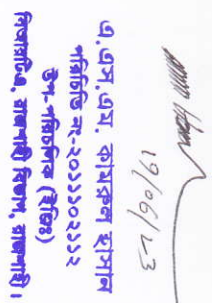 19/06/23
এ.এস.এম. কামরুল হাসান
পরিচিতি নং-২০১১১০২১১২
উপ-পরিচালক (ইঞ্জিঃ)
বিআরটিএ, রাজশাহী বিভাগ, রাজশাহী।